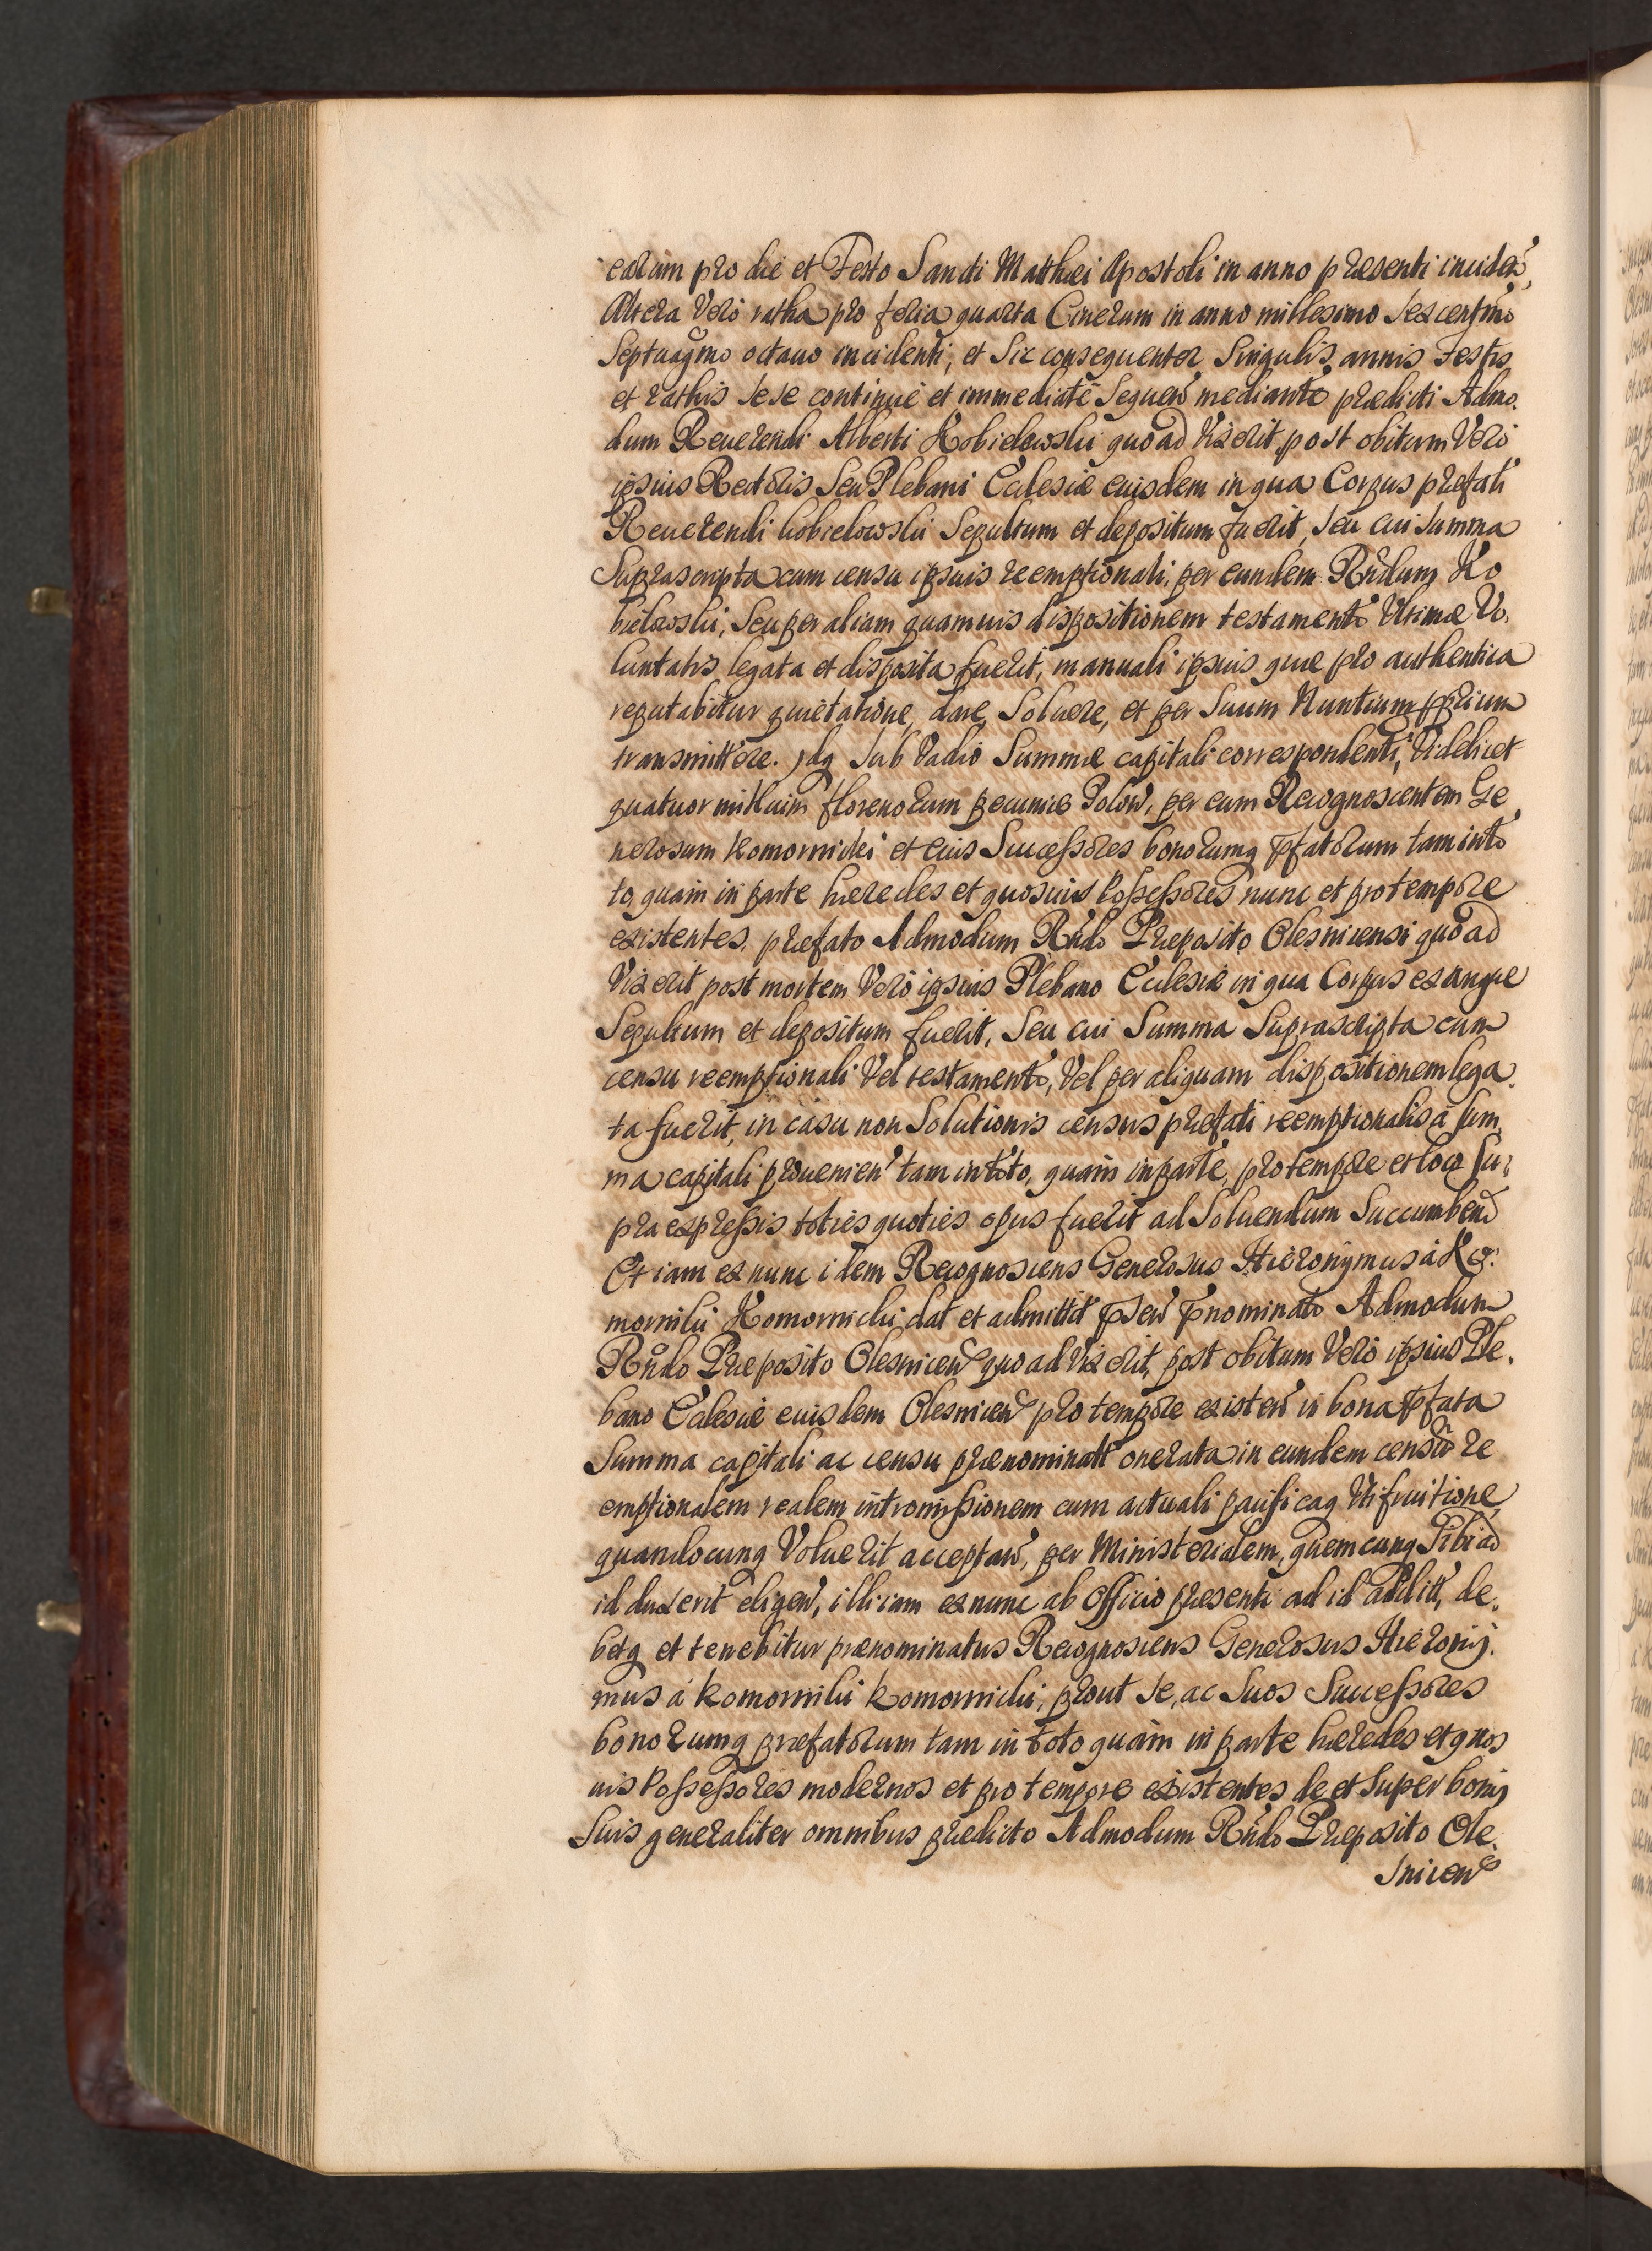 earum pro die et Festo Sancti Matthæi Apostoli in anno præsenti inciden̄,
Altera Verò ratha pro feria quarta Cinerum in anno millesimo sexcentḡmo
Septuaḡmo octauo incidenti, et sic consequenter singulis annis Festis
et rathis sese continuè et immediatè sequen̄ mediante prædicti Admo.
dum Reuerendi Alberti Kobielowski quoad vixerit, post obitum Verò
ipsius Rectoris seu Plebani Ecclesiæ eiusdem in qua Corpus præfati
Reuerendi Kobielowski Sepultum et depositum fuerit, seu cui Summa
Suprascripta cum censu ipsius reemptionali, per eundem Rn̄dum Ko
bielowski, seu per aliam quamuis dispositionem testamenti Vltimæ Vo.
luntatis legata et disposita fuerit, manuali ipsius quæ pro authentica
reputabitur quietatione, dare, Soluere, et per Suum Nuntium pprium
transmittere. Idq sub Vadio Summæ capitali correspondenti, Videlicet
quatuor millium florenorum pecuniæ Polon̄, per eum Recognoscentem Ge
nerosum Komornicki et eius Successores bonorumq pfatorum tam in to
to, quàm in parte hæredes et quosuis Possessores nunc et pro tempore
existentes, præfato Admodum Rn̄do Præposito Olesnicensi quoad
Vixerit post mortem Verò ipsius Plebano Ecclesiæ in qua Corpus exangue
Sepultum et depositum fuerit, Seu cui Summa Suprascripta cum
censu reemptionali Vel testamento, Vel per aliquam dispositionem lega.
ta fuerit, in casu non Solutionis census præfati reemptionalis à Sum,
ma capitali prouenien̄ tam in toto, quàm in parte, pro tempore et loco Su,
pra expressis toties quoties opus fuerit ad Soluendum Succumben̄
Et iam ex nunc idem Recognoscens Generosus Hieronymus à Ko.
morniki Komornicki dat et admittit pn̄sen̄ pnominato Admodum
Rn̄do Præposito Olesnicen̄ quoad Vixerit, post obitum Verò ipsius Ple.
bano Ecclesiæ eiusdem Olesnicen̄ pro tempore existen̄ in bona pfata
Summa capitali ac censu prænominatt onerata in eundem censū re
emptionalem realem intromissionem cum actuali pacificaq Vtifruitione,
quandocunq Voluerit acceptan̄, per Ministerialem, quemcunq Sibi ad
id duxerit eligen̄, illi iam ex nunc ab Officio præsenti ad id additt, de.
betq et tenebitur prænominatus Recognoscens Generosus Hieronij.
mus à Komorniki Komornicki, prout se, ac Suos Successores
bonorumq præfatorum tam in toto quàm in parte hæredes et quos
uis Possessores modernos et pro tempore existentes de et Super bonis
Suis generaliter omnibus prædicto Admodum Rn̄do Præposito Ole.
snicen̄